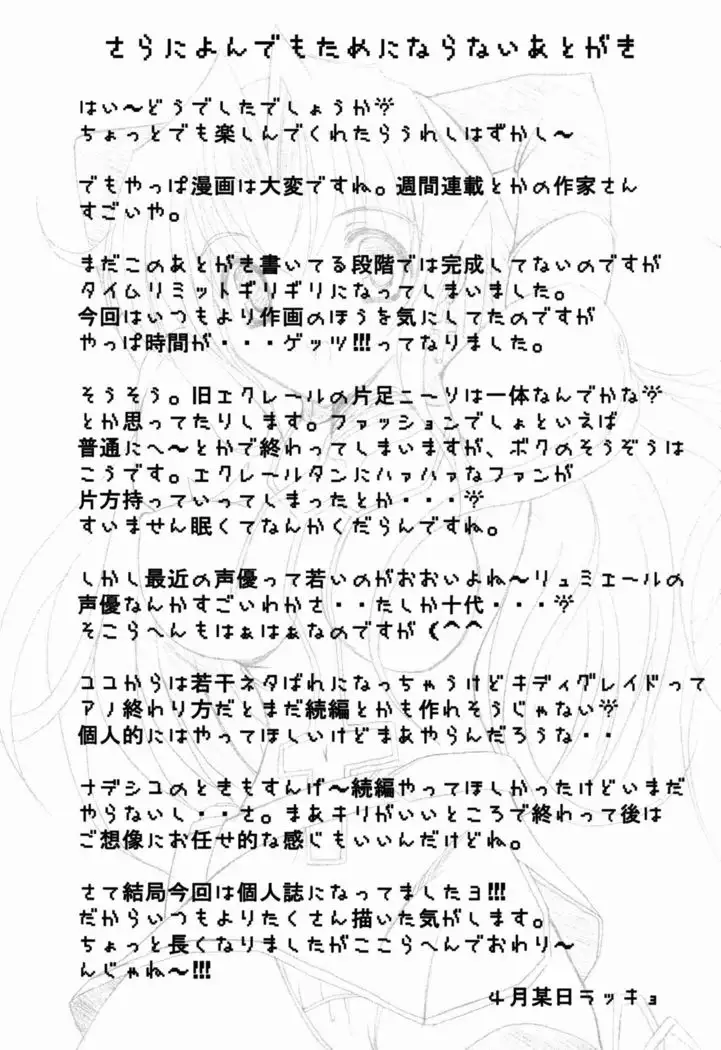 さらによんでもためにならないあとがき
はい～どうでしたでしょうか?
ちょっとでも楽しんでくれたらうれしはずかし～
でもやっぱ漫画は大変ですね。週間連載とかの作家さん
すごいや。
まだこのあとがき書いてる段階では完成してないのですが
タイムリミットギリギリになってしまいました。
今回はいつもより作画のほうを気にしてたのですが
やっぱ時間が・・・ゲッツ!!!ってなりました。
そうそう。旧エクレールの片足ニーソは一体なんでかな?
とか思ってたりします。ファッションでしょといえば
普通にへ～とかで終わってしまいますが、ボクのそうぞうは
こうです。エクレールタンにハァハァなファンが
片方持っていってしまったとか・・・?
すいません眠くてなんかくだらんですね。
しかし最近の声優って若いのがおおいよね～リュミエールの
声優なんかすごいわかさ・・たしか十代・・・?
そこらへんもはぁはぁなのですが (^^
ココからは若干ネタばれになっちゃうけどキディグレイドって
アノ終わり方だとまだ続編とかも作れそうじゃない?
個人的にはやってほしいけどまあやらんだろうな・・
ナデシコのときもすんげ～続編やってほしかったけどいまだ
やらないし・・さ。まあキリがいいところで終わって後は
ご想像にお任せ的な感じもいいんだけどね。
さて結局今回は個人誌になってましたヨ!!!
だからいつもよりたくさん描いた気がします。
ちょっと長くなりましたがここらへんでおわり～
んじゃね～!!!
4月某日ラッキョ